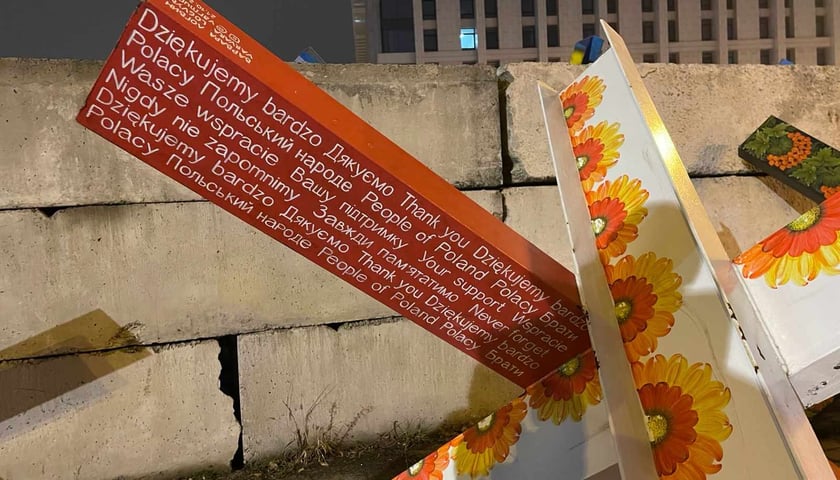 Dziękujemy bardzo Дякуємо Thank you Dziękujemy bardzo
Polacy Польський народе People of Poland Polacy Брати
Wasze wspracie Вашу підтримку your support Wspracie
Nigdy nie zapomnimy Завжди пам'ятатимо Never forget
Dziękujemy bardzo Дякуємо Thank you Dziękujemy bardzo
Polacy Польський народе People of Poland Polacy Брати